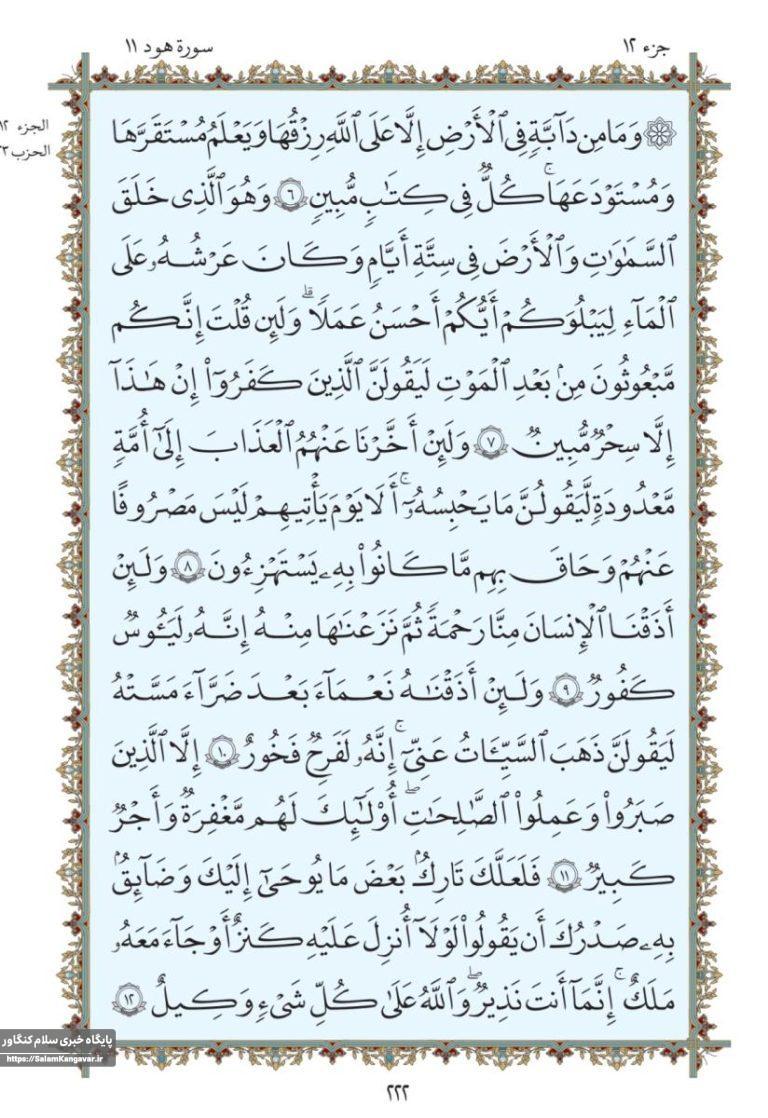 جزء ١٢
سورة هود ١١
الجزء ١٢
الحزب
۞ وَمَا مِن دَآبَّةٍ فِي ٱلْأَرْضِ إِلَّا عَلَى ٱللَّهِ رِزْقُهَا وَيَعْلَمُ مُسْتَقَرَّهَا
وَمُسْتَوْدَعَهَا ۚ كُلٌّ فِي كِتَٰبٍ مُّبِينٍ ٦ وَهُوَ ٱلَّذِي خَلَقَ
ٱلسَّمَٰوَٰتِ وَٱلْأَرْضَ فِي سِتَّةِ أَيَّامٍ وَكَانَ عَرْشُهُۥ عَلَى
ٱلْمَآءِ لِيَبْلُوَكُمْ أَيُّكُمْ أَحْسَنُ عَمَلًا ۗ وَلَئِن قُلْتَ إِنَّكُم
مَّبْعُوثُونَ مِنۢ بَعْدِ ٱلْمَوْتِ لَيَقُولَنَّ ٱلَّذِينَ كَفَرُوٓا۟ إِنْ هَٰذَآ
إِلَّا سِحْرٌ مُّبِينٌ ٧ وَلَئِنْ أَخَّرْنَا عَنْهُمُ ٱلْعَذَابَ إِلَىٰٓ أُمَّةٍ
مَّعْدُودَةٍ لَّيَقُولُنَّ مَا يَحْبِسُهُۥٓ ۗ أَلَا يَوْمَ يَأْتِيهِمْ لَيْسَ مَصْرُوفًا
عَنْهُمْ وَحَاقَ بِهِم مَّا كَانُوا۟ بِهِۦ يَسْتَهْزِءُونَ ٨ وَلَئِنْ
أَذَقْنَا ٱلْإِنسَٰنَ مِنَّا رَحْمَةً ثُمَّ نَزَعْنَٰهَا مِنْهُ إِنَّهُۥ لَيَـُٔوسٌ
كَفُورٌ ٩ وَلَئِنْ أَذَقْنَٰهُ نَعْمَآءَ بَعْدَ ضَرَّآءَ مَسَّتْهُ
لَيَقُولَنَّ ذَهَبَ ٱلسَّيِّـَٔاتُ عَنِّيٓ ۚ إِنَّهُۥ لَفَرِحٌ فَخُورٌ ١٠ إِلَّا ٱلَّذِينَ
صَبَرُوا۟ وَعَمِلُوا۟ ٱلصَّٰلِحَٰتِ أُو۟لَٰٓئِكَ لَهُم مَّغْفِرَةٌ وَأَجْرٌ
كَبِيرٌ ١١ فَلَعَلَّكَ تَارِكٌۢ بَعْضَ مَا يُوحَىٰٓ إِلَيْكَ وَضَآئِقٌۢ
بِهِۦ صَدْرُكَ أَن يَقُولُوا۟ لَوْلَآ أُنزِلَ عَلَيْهِ كَنزٌ أَوْ جَآءَ مَعَهُۥ
مَلَكٌ ۚ إِنَّمَآ أَنتَ نَذِيرٌ ۚ وَٱللَّهُ عَلَىٰ كُلِّ شَيْءٍ وَكِيلٌ ١٢
پایگاه خبری سلام کنگاور
https://SalamKangavar.ir
٢٢٢